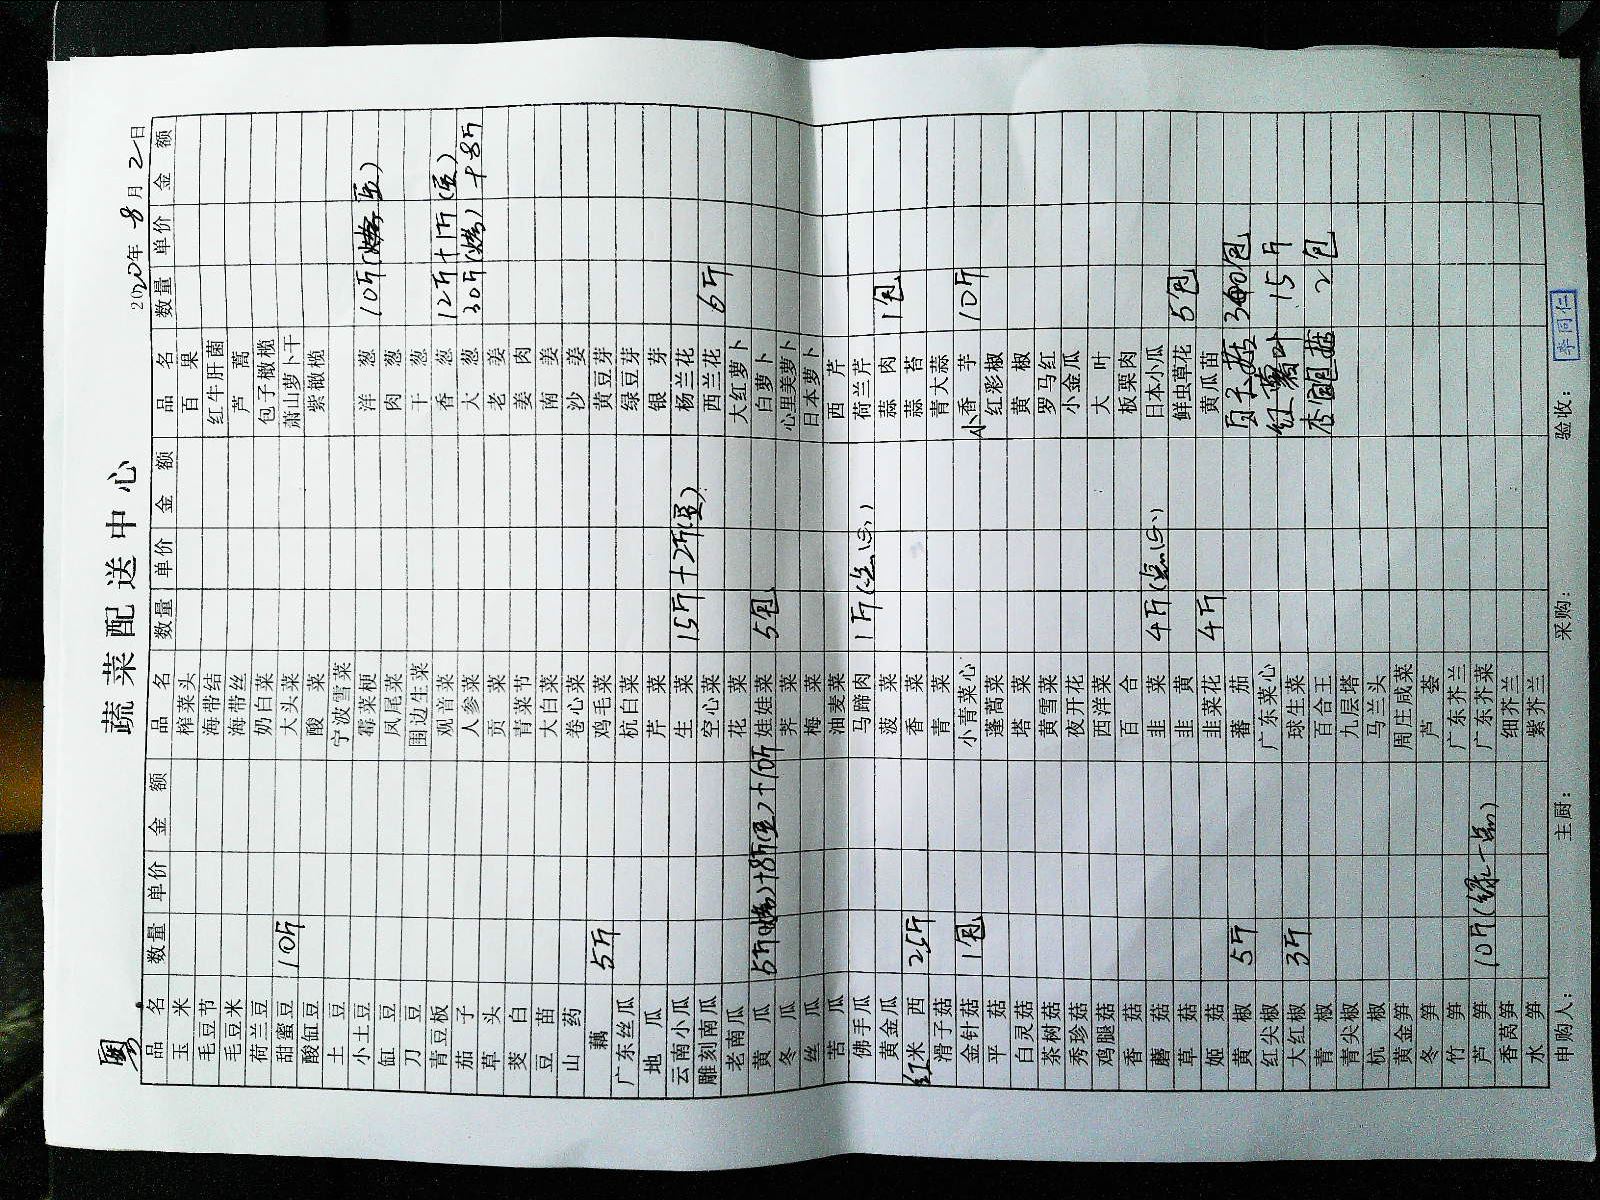 蔬菜配送中心
粤 2020年8月2日
品名 数量 单价 金额 品名 数量 单价 金额 品名 数量 单价 金额
玉米 榨菜头 百果
毛豆节 海带结 红牛肝菌
毛豆米 海带丝 芦蒿
荷兰豆 奶白菜 包子橄榄
甜蜜豆 10斤 大头菜 萧山萝卜干
酸缸豆 酸菜 紫橄榄
土豆 宁波雪菜
小土豆 霉菜梗 洋葱 10斤
缸豆 凤尾菜 肉葱
刀豆 围边生菜 干葱
青豆板 观音菜 香葱 12斤+1斤(蛋)
茄子 人参菜 大葱 30斤(烤)+8斤
草头 贡菜 老姜
茭白 青菜节 姜肉
豆苗 大白菜 南姜
山药 卷心菜 沙姜
藕 5斤 鸡毛菜 黄豆芽
广东丝瓜 杭白菜 绿豆芽
地瓜 芹菜 银芽
云南小瓜 生菜 15斤+2斤(蛋) 杨兰花
雕刻南瓜 空心菜 西兰花 6斤
老南瓜 花菜 大红萝卜
黄瓜 5斤(烤)+8斤(蛋)+10斤 娃娃菜 5包 白萝卜
冬瓜 荠菜 心里美萝卜
丝瓜 梅菜 日本萝卜
苦瓜 油麦菜 西芹
佛手瓜 马蹄肉 1斤(点心) 荷兰芹
黄金瓜 菠菜 蒜肉 1包
红米西 25斤 香菜 蒜苔
滑子菇 青菜 青大蒜
金针菇 1包 小青菜心 小香芋 10斤
平菇 蓬蒿菜 红彩椒
白灵菇 塔菜 黄椒
茶树菇 黄雪菜 罗马红
秀珍菇 夜开花 小金瓜
鸡腿菇 西洋菜 大叶
香菇 百合 板栗肉
蘑菇 韭菜 4斤(点心) 日本小瓜
草菇 韭黄 鲜虫草花 5包
姬菇 韭菜花 4斤 黄瓜苗
黄椒 5斤 蕃茄 白玉菇
红尖椒 广东菜心 红薯叶 15斤
大红椒 3斤 球生菜
青椒 百合王 杏鲍菇 2包
青尖椒 九层塔
杭椒 马兰头
黄金笋 周庄咸菜
冬笋 芦荟
竹笋 广东芥兰
芦笋 10斤(绿一点) 广东芥菜
香莴笋 细芥兰
水笋 紫芥兰
申购人： 主厨： 采购： 验收： 李同仁